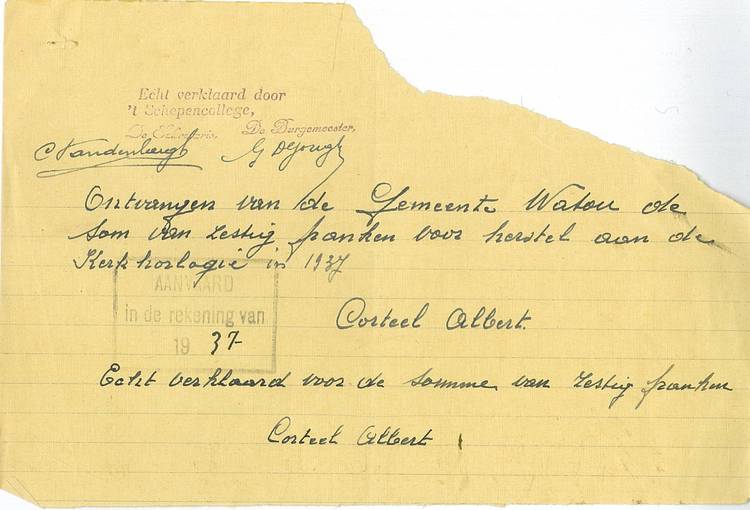 Echt verklaard door
't Schepencollege,
De Secretaris, De Burgemeester,
Ontvangen van de Gemeente Watou de
som van zestig franken voor herstel aan de
Kerkhorlogie in 1937
AANVAARD
in de rekening van
19 37-
Corteel Albert.
Echt verklaard voor de somme van zestig franken
Corteel Albert